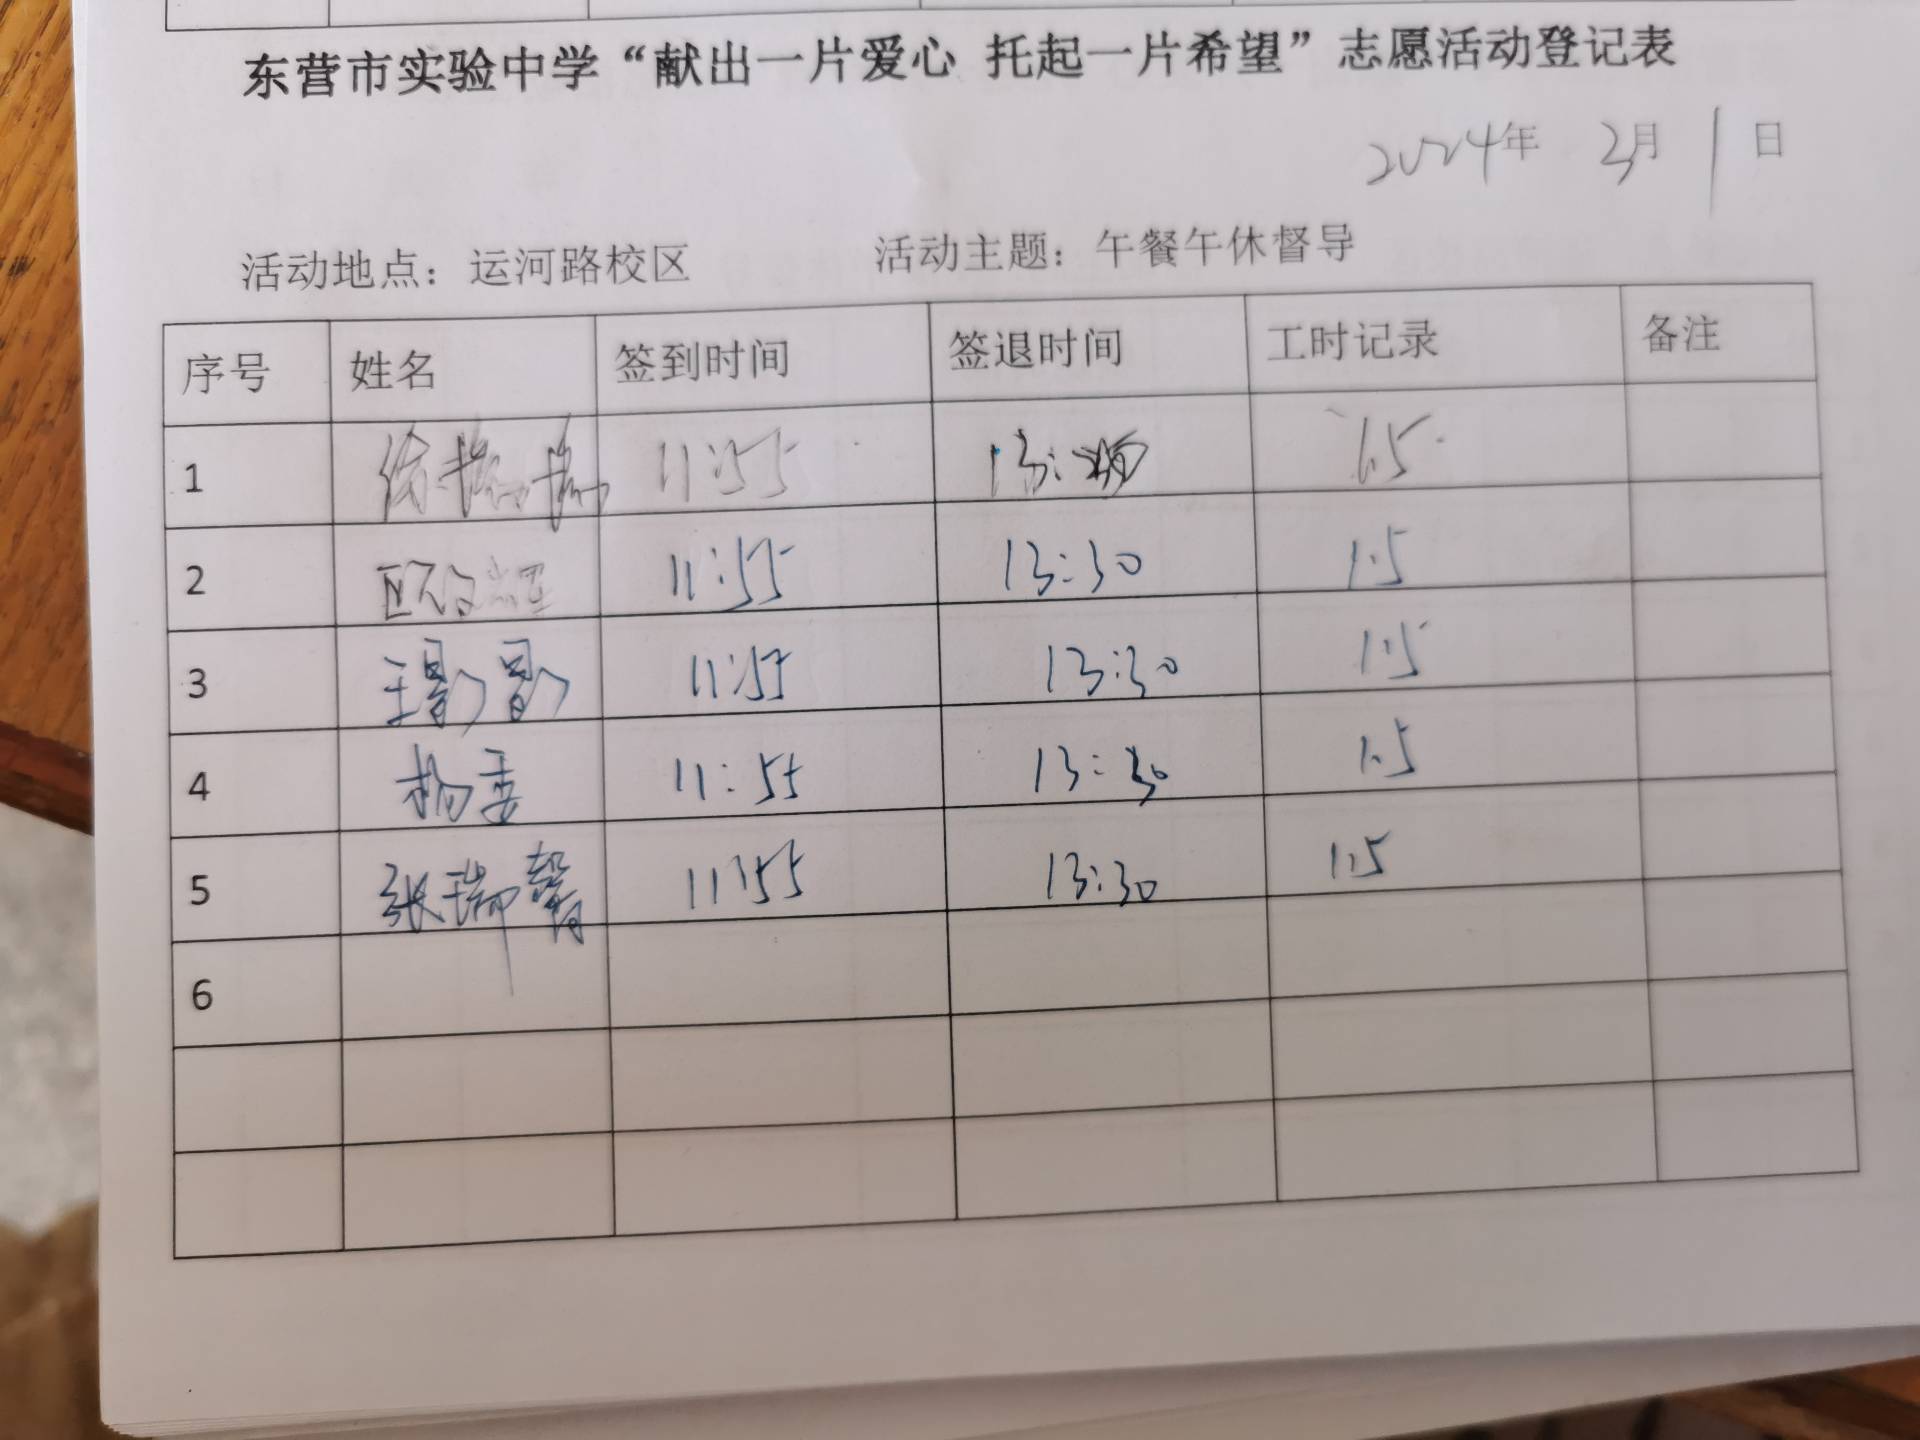 东营市实验中学“献出一片爱心 托起一片希望”志愿活动登记表
2024年 3月 1日
活动地点：运河路校区 活动主题：午餐午休督导
序号 姓名 签到时间 签退时间 工时记录 备注
1 11:55 13: 1.5
2 11:55 13:30 1.5
3 王影影 11:55 13:30 1.5
4 杨 11:55 13:30 1.5
5 张瑞馨 11:55 13:30 1.5
6